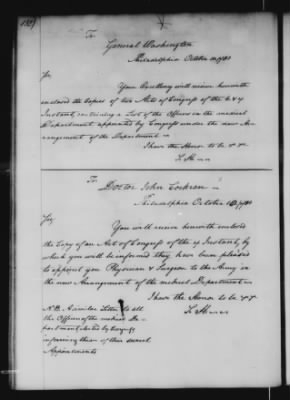 To
General Washington
Philadelphia October
Sir
Your Excellency will receive herewith
enclosed the Copies of two Acts of Congress of the 6 & 7
Instant, containing a List of the Officers in the medical
Department appointed by Congress under the new Ar-
rangement of the Department
I have the Honor to be &c
S. H
To
Doctor John Cochran
Philadelphia October
Sir,
You will receive herewith enclosed
the Copy of an Act of Congress of the Instant, by
which you will be informed they have been pleased
to appoint you Physician & Surgeon to the Army in
the new Arrangement of the medical Department
I have the Honor to be &c
S. H
N.B. A similar Letter to all
the Officers of the medical De-
partment elected by Congress
informing them of their several
Appointments